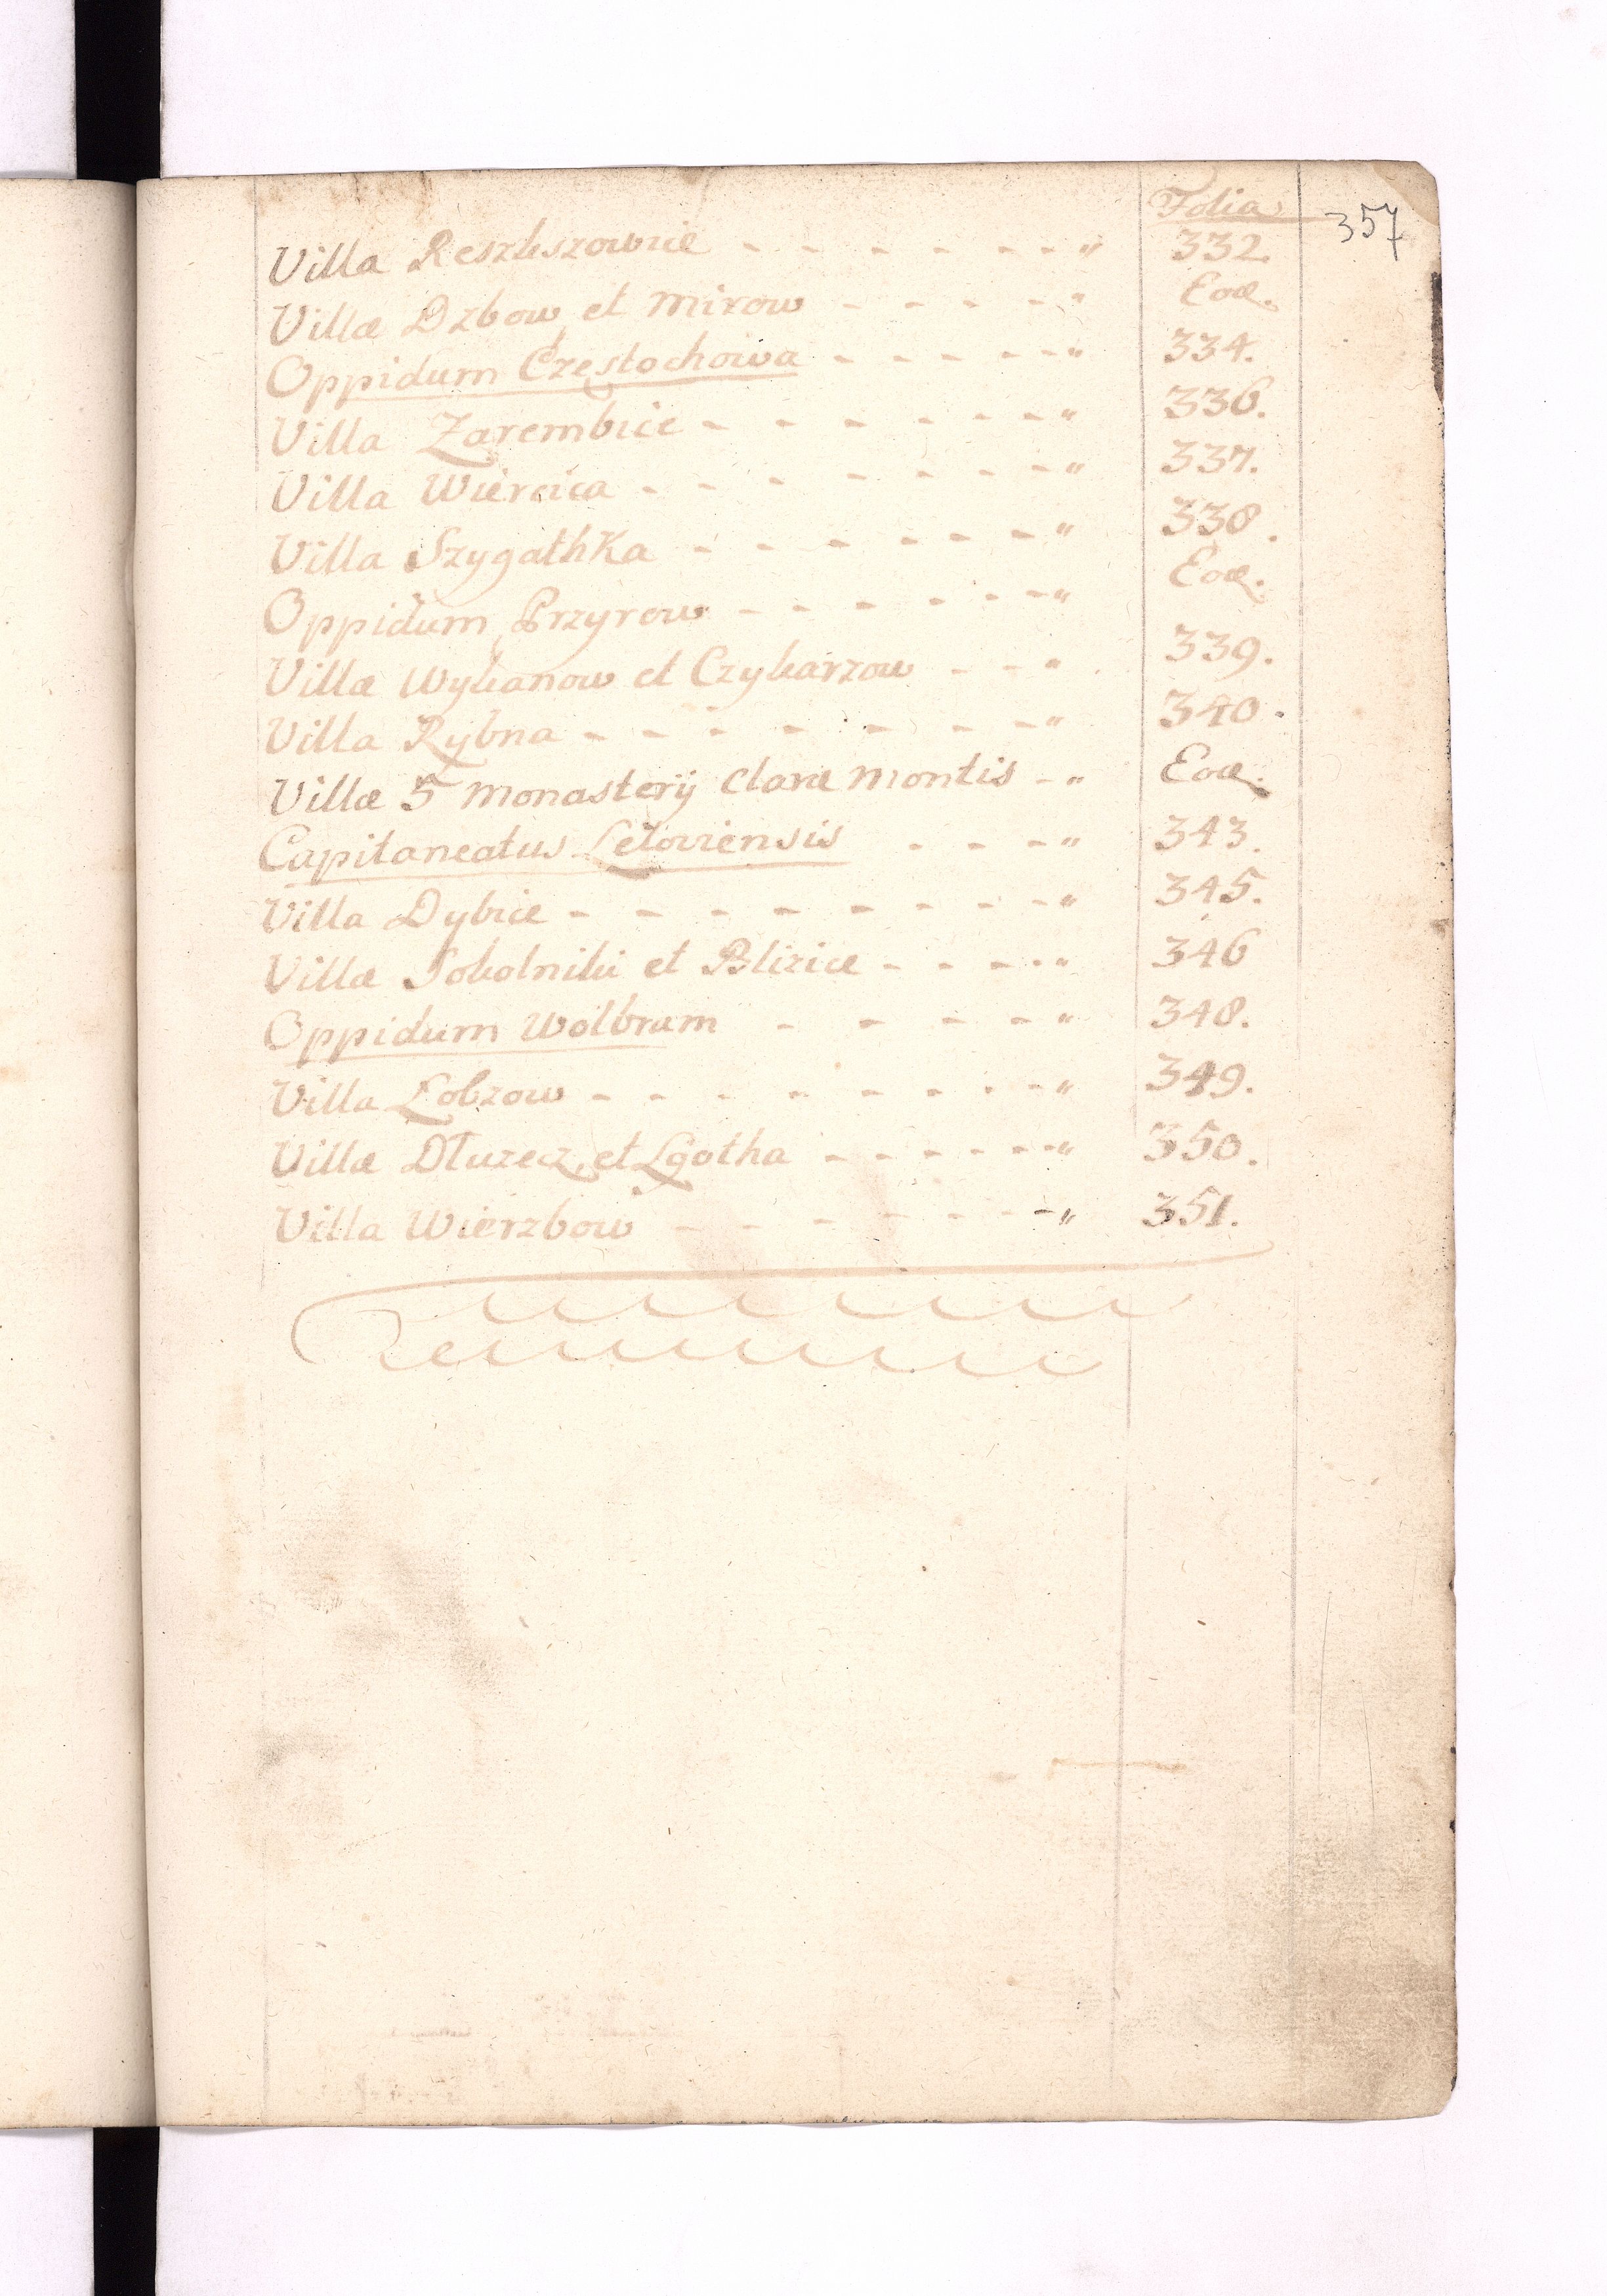 Folia
357
Villa Reszkszowice - - - - - - - " 332.
Villæ Dzbow et Mirow - - - - - " Eoce.
Oppidum Częstochowa - - - - - " 334.
Villa Zarembice - - - - - - " 336.
Villa Wiercica - - - - - - - " 337.
Villa Szygathka - - - - - - " 338.
Oppidum Przyrow - - - - - - " Eoce.
Villæ Wykanow et Czykarzow - - " 339.
Villa Rybna - - - - - - - " 340.
Villæ 5 Monasterij Claræ Montis - " Eoce.
Capitaneatus Leloviensis - - - " 343.
Villa Dybice - - - - - - - - " 345.
Villæ Sokolniki et Blizice - - - - " 346
Oppidum Wolbram - - - - - " 348.
Villa Łobzow - - - - - - - - " 349.
Villæ Dłuzecz, et Lgotha - - - - - - " 350.
Villa Wierzbow - - - - - - - " 351.